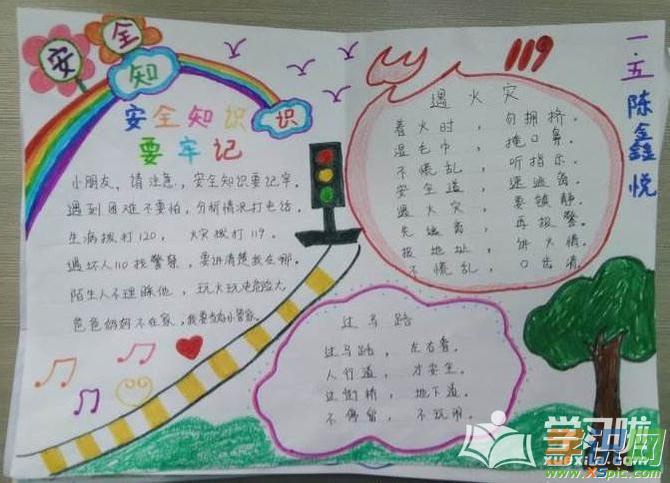 安全知识
安全知识
要牢记
小朋友，请注意，安全知识要记牢。
遇到困难不要怕，分析情况打电话。
生病拨打120，火灾拨打119。
遇坏人110找警察，要讲清楚我在哪。
陌生人不理睬他，玩火玩电危险大
爸爸妈妈不在家，我要当好小管家。
119
遇火灾
着火时，勿拥挤。
湿毛巾，掩口鼻。
不慌乱，听指示。
安全道，速逃离。
遇火灾，要镇静。
先逃离，再报警。
报地址，讲火情。
不慌乱，口齿清。
一.五 陈鑫悦
过马路
过马路，左右看。
人行道，才安全。
过街桥，地下道。
不停留，不玩闹。
xuexila.com
www.xspic.com